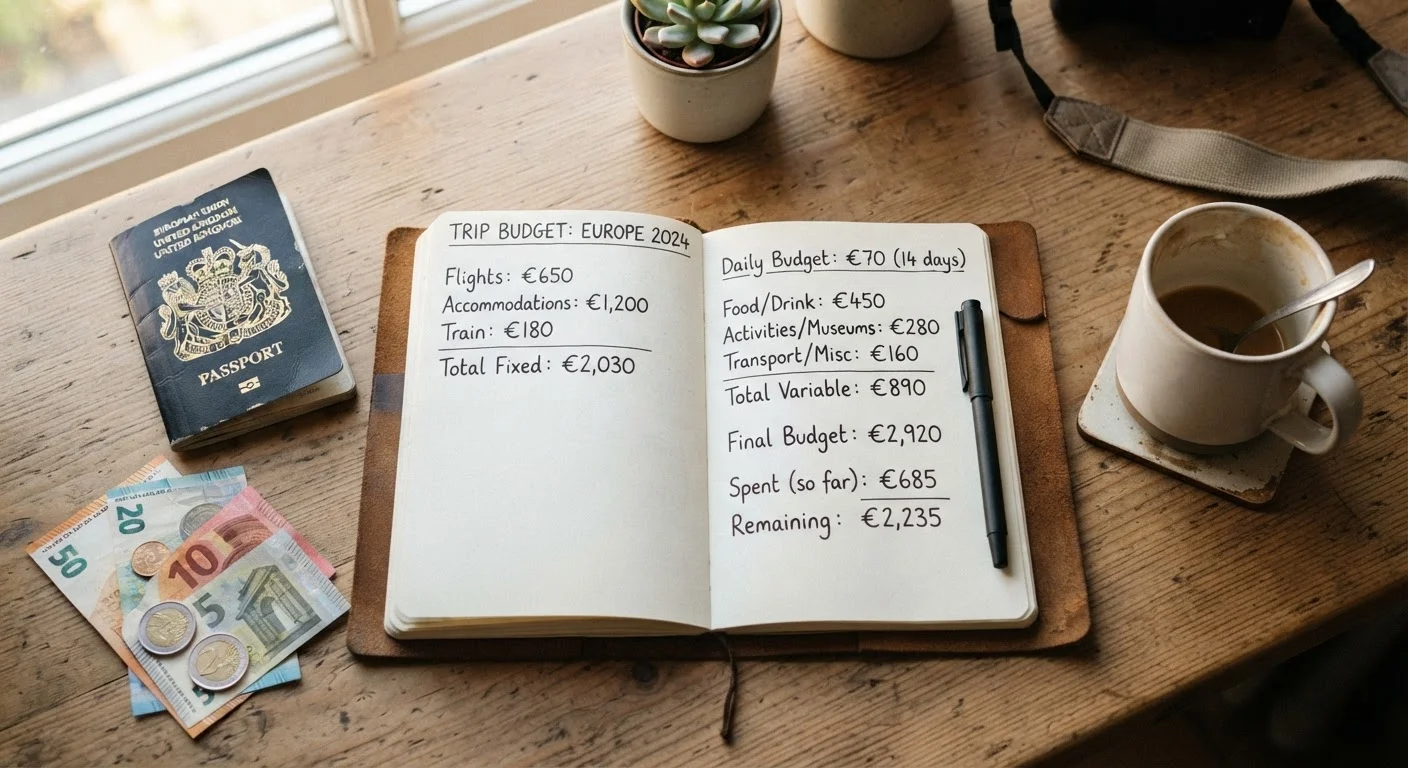 EUROPEAN UNION
UNITED KINGDOM
UNITED KINGDOM
PASSPORT
TRIP BUDGET: EUROPE 2024
Flights: €650
Accommodations: €1,200
Train: €180
Total Fixed: €2,030
Daily Budget: €70 (14 days)
Food/Drink: €450
Activities/Museums: €280
Transport/Misc: €160
Total Variable: €890
Final Budget: €2,920
Spent (so far): €685
Remaining: €2,235
50
20
10
5
5